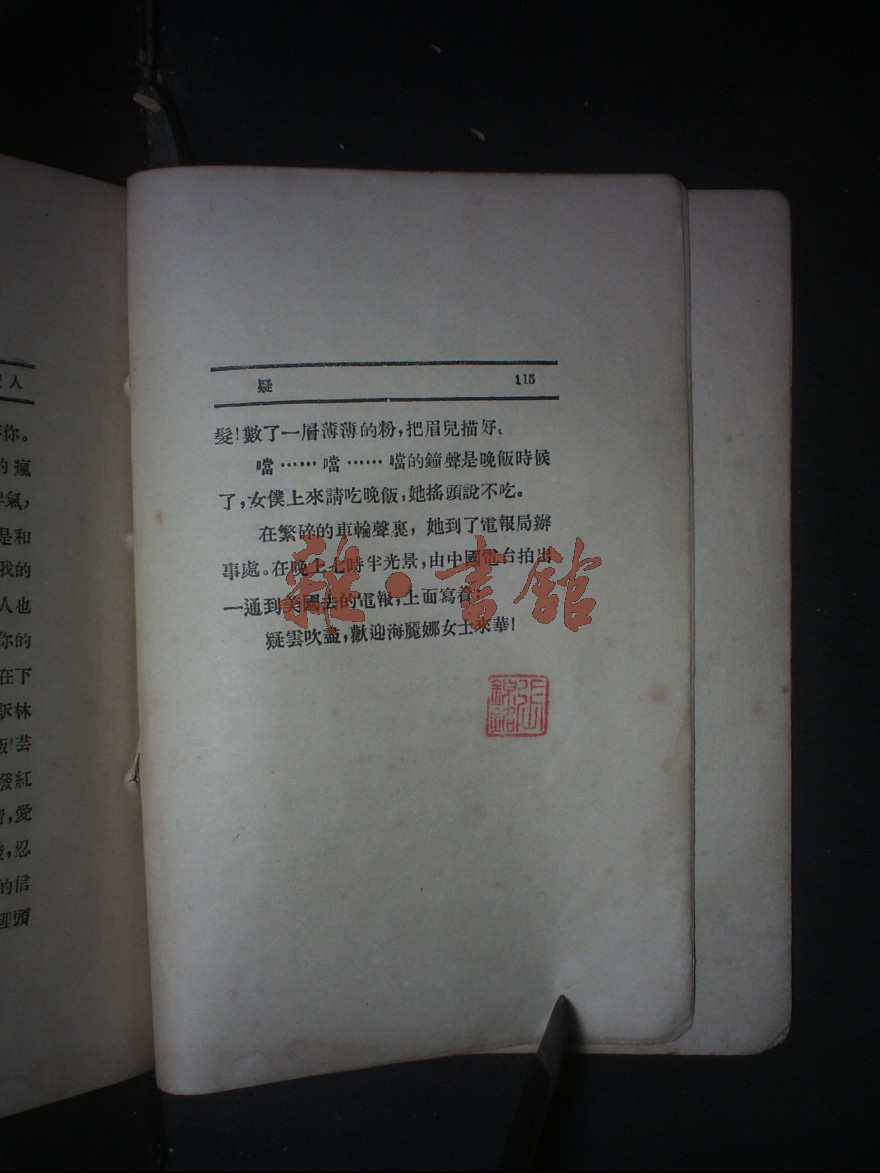 人
你。
的瘋
氣,
是和
我的
人也
你的
在下
訴林
飯!芸
發紅
,愛
,忍
的信
埋頭
疑 115
髮!數了一層薄薄的粉,把眉兒描好。
噹……噹……噹的鐘聲是晚飯時候
了,女僕上來請吃晚飯,她搖頭說不吃。
在繁碎的車輪聲裏,她到了電報局辦
事處。在晚上七時半光景,由中國電台拍出
一通到美國去的電報,上面寫着:
疑雲吹盡,歡迎海麗娜女士來華!
雜·書館
張山錦銘